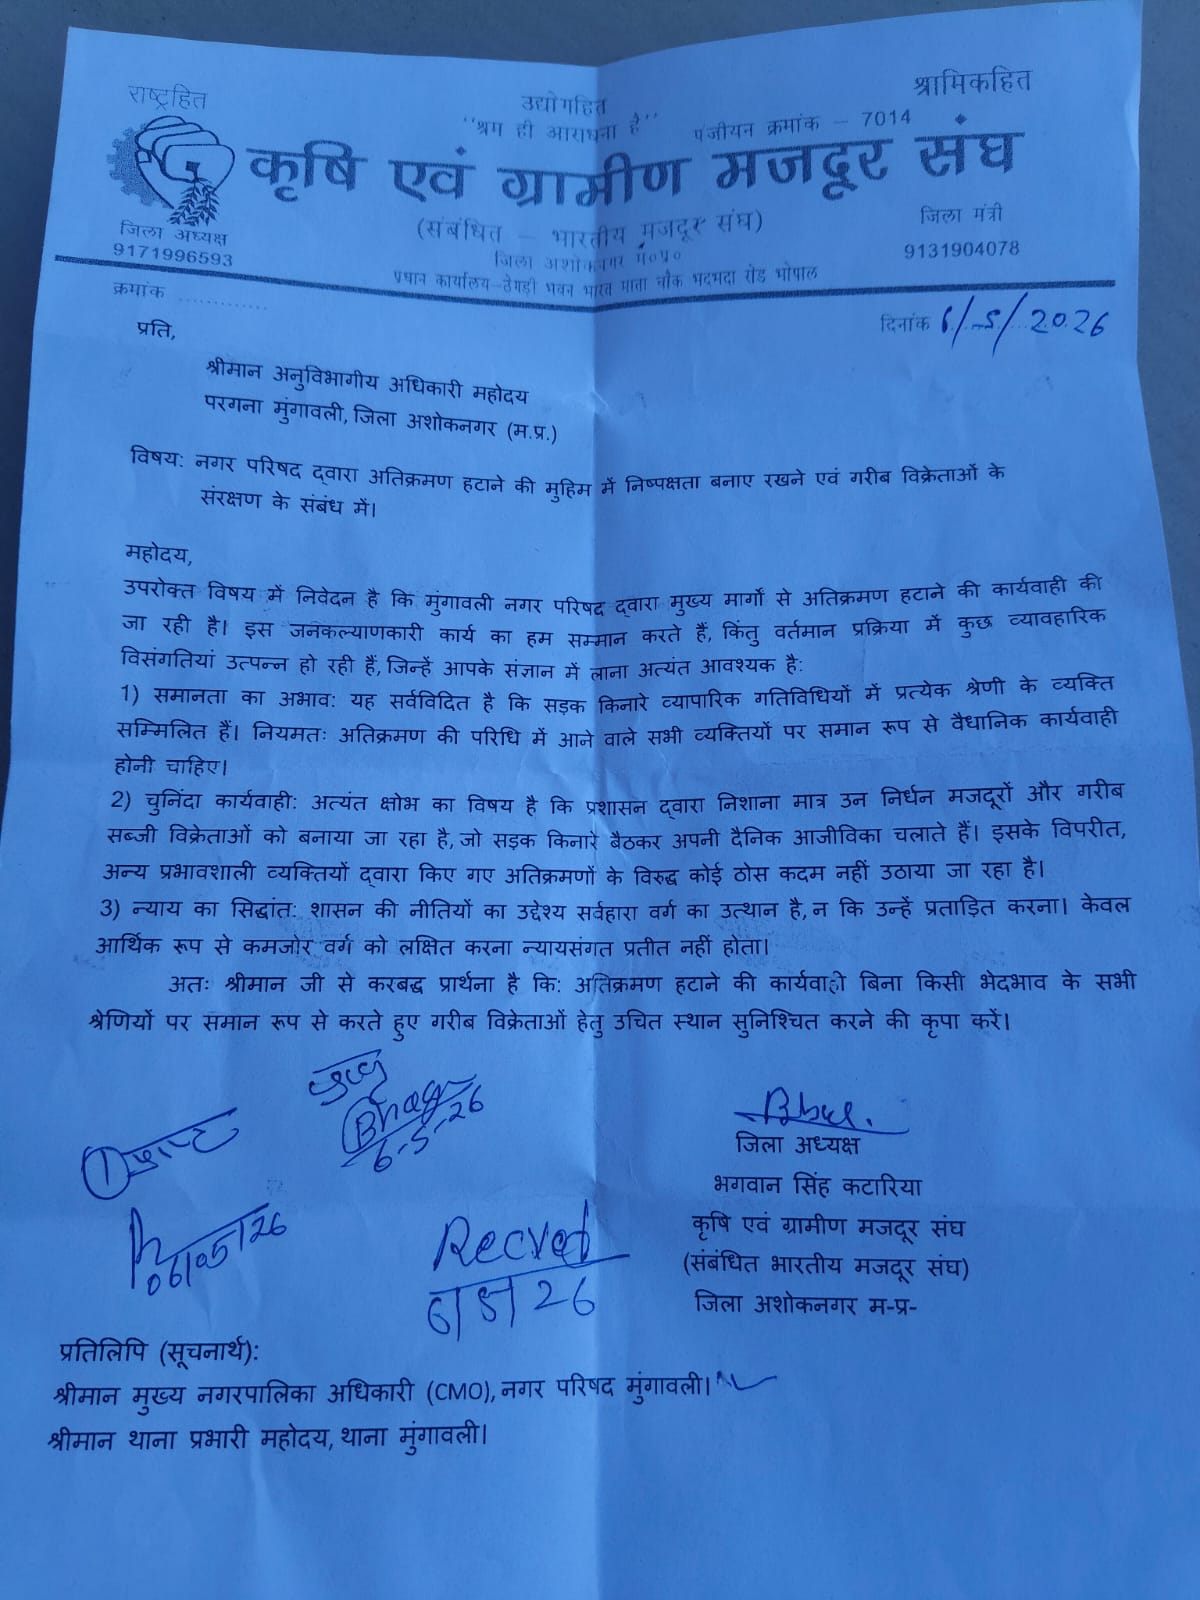 राष्ट्रहित
उद्योगहित
श्रामिकहित
"श्रम ही आराधना है"
पंजीयन क्रमांक - 7014
कृषि एवं ग्रामीण मजदूर संघ
(संबंधित - भारतीय मजदूर संघ)
जिला अध्यक्ष
9171996593
जिला अशोकनगर म०प्र०
जिला मंत्री
9131904078
प्रधान कार्यालय-ठेंगड़ी भवन भारत माता चौक भदभदा रोड भोपाल
क्रमांक ............
दिनांक 6/5/2026
प्रति,
श्रीमान अनुविभागीय अधिकारी महोदय
परगना मुंगावली, जिला अशोकनगर (म.प्र.)
विषय: नगर परिषद द्वारा अतिक्रमण हटाने की मुहिम में निष्पक्षता बनाए रखने एवं गरीब विक्रेताओं के
संरक्षण के संबंध में।
महोदय,
उपरोक्त विषय में निवेदन है कि मुंगावली नगर परिषद द्वारा मुख्य मार्गों से अतिक्रमण हटाने की कार्यवाही की
जा रही है। इस जनकल्याणकारी कार्य का हम सम्मान करते हैं, किंतु वर्तमान प्रक्रिया में कुछ व्यावहारिक
विसंगतियां उत्पन्न हो रही हैं, जिन्हें आपके संज्ञान में लाना अत्यंत आवश्यक है:
1) समानता का अभाव: यह सर्वविदित है कि सड़क किनारे व्यापारिक गतिविधियों में प्रत्येक श्रेणी के व्यक्ति
सम्मिलित हैं। नियमतः अतिक्रमण की परिधि में आने वाले सभी व्यक्तियों पर समान रूप से वैधानिक कार्यवाही
होनी चाहिए।
2) चुनिंदा कार्यवाही: अत्यंत क्षोभ का विषय है कि प्रशासन द्वारा निशाना मात्र उन निर्धन मजदूरों और गरीब
सब्जी विक्रेताओं को बनाया जा रहा है, जो सड़क किनारे बैठकर अपनी दैनिक आजीविका चलाते हैं। इसके विपरीत,
अन्य प्रभावशाली व्यक्तियों द्वारा किए गए अतिक्रमणों के विरुद्ध कोई ठोस कदम नहीं उठाया जा रहा है।
3) न्याय का सिद्धांत: शासन की नीतियों का उद्देश्य सर्वहारा वर्ग का उत्थान है, न कि उन्हें प्रताड़ित करना। केवल
आर्थिक रूप से कमजोर वर्ग को लक्षित करना न्यायसंगत प्रतीत नहीं होता।
अतः श्रीमान जी से करबद्ध प्रार्थना है कि: अतिक्रमण हटाने की कार्यवाही बिना किसी भेदभाव के सभी
श्रेणियों पर समान रूप से करते हुए गरीब विक्रेताओं हेतु उचित स्थान सुनिश्चित करने की कृपा करें।
6-5-26
जिला अध्यक्ष
भगवान सिंह कटारिया
कृषि एवं ग्रामीण मजदूर संघ
(संबंधित भारतीय मजदूर संघ)
जिला अशोकनगर म-प्र-
Recved
प्रतिलिपि (सूचनार्थ):
श्रीमान मुख्य नगरपालिका अधिकारी (CMO), नगर परिषद मुंगावली।
श्रीमान थाना प्रभारी महोदय, थाना मुंगावली।